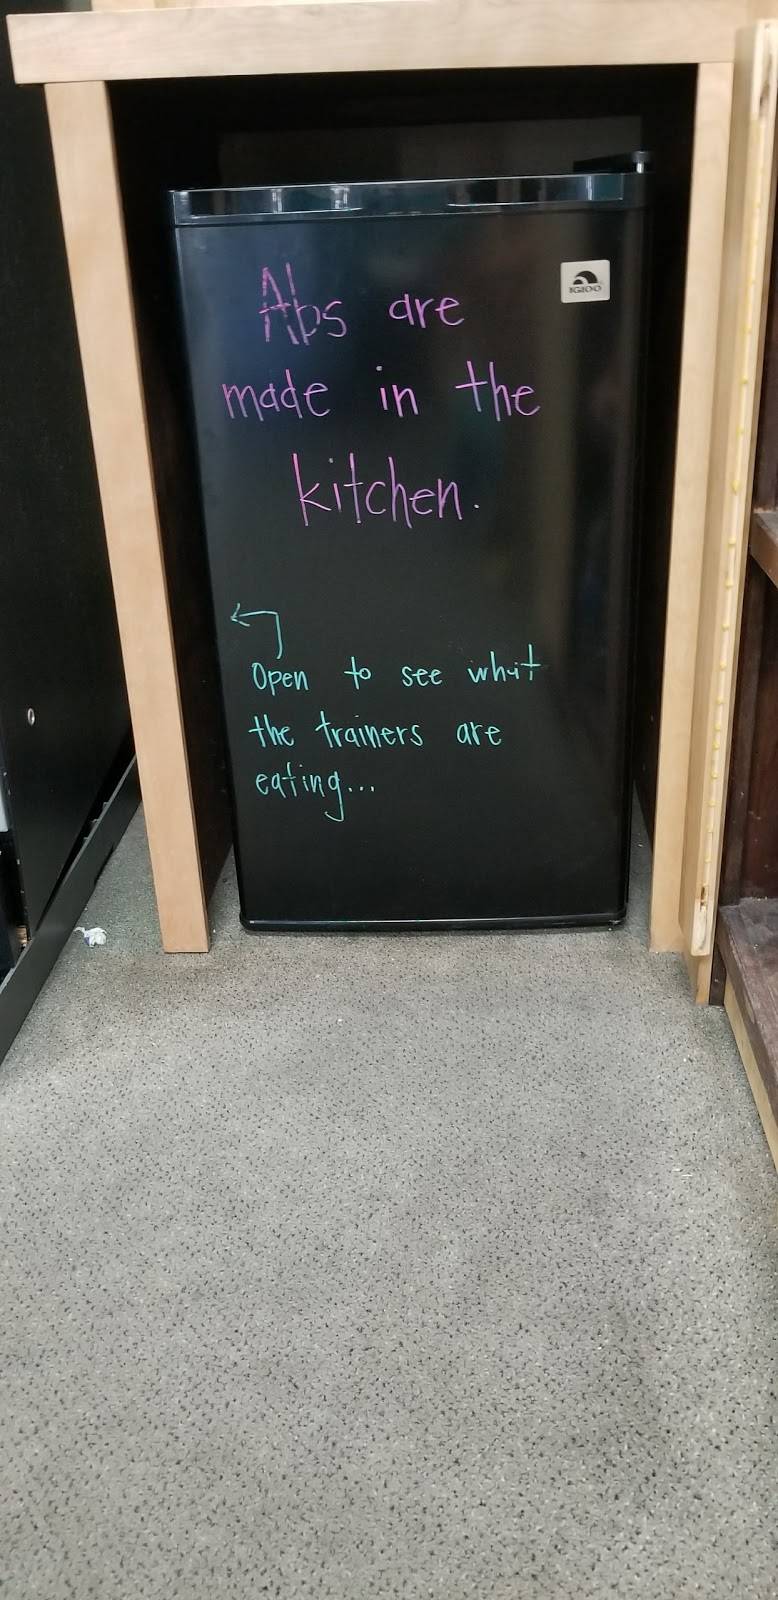 IGLOO
Abs are
made in the
kitchen.
Open to see what
the trainers are
eating...